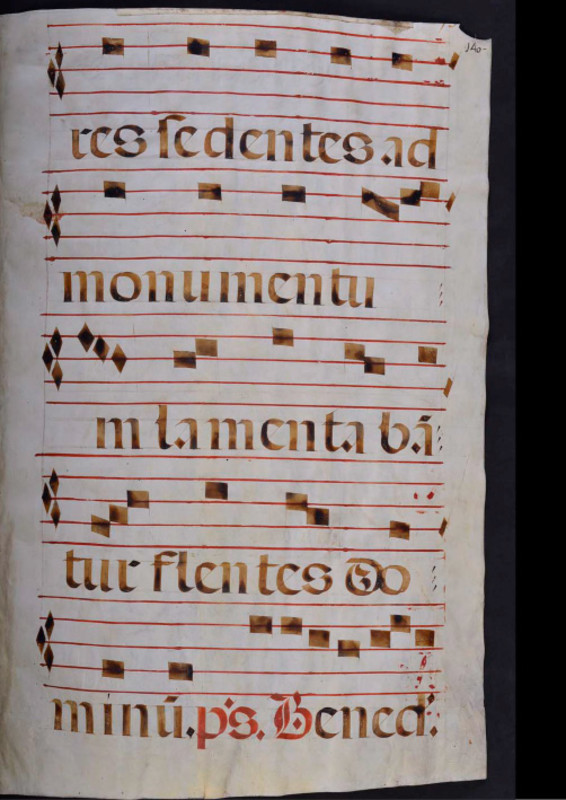 140.
res sedentes ad
monumentu
m lamentabā
tur flentes Do
minū. ps. Bened.